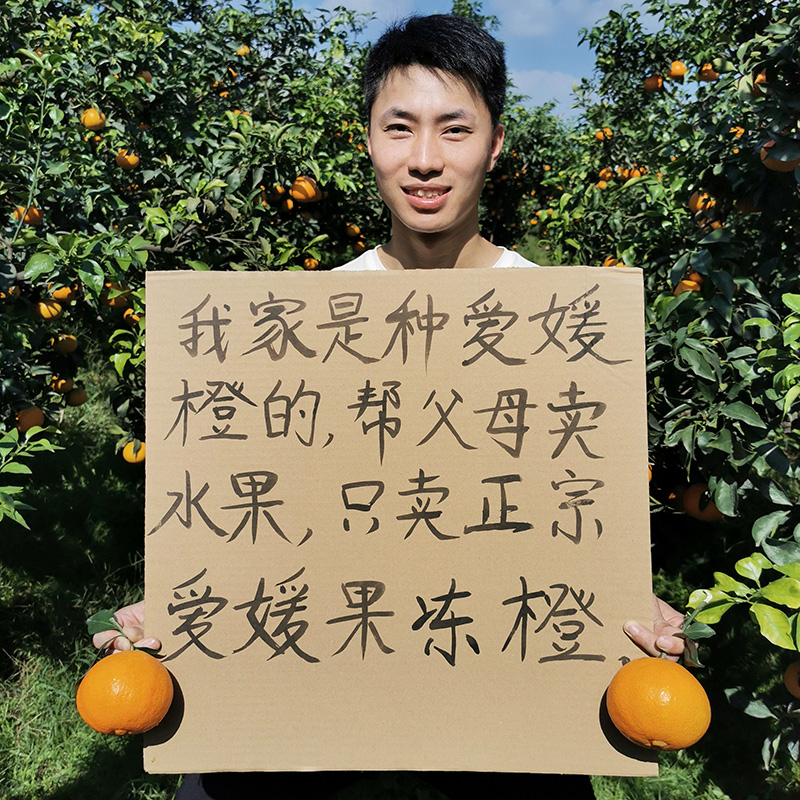 我家是种爱媛
橙的,帮父母卖
水果,只卖正宗
爱媛果冻橙.